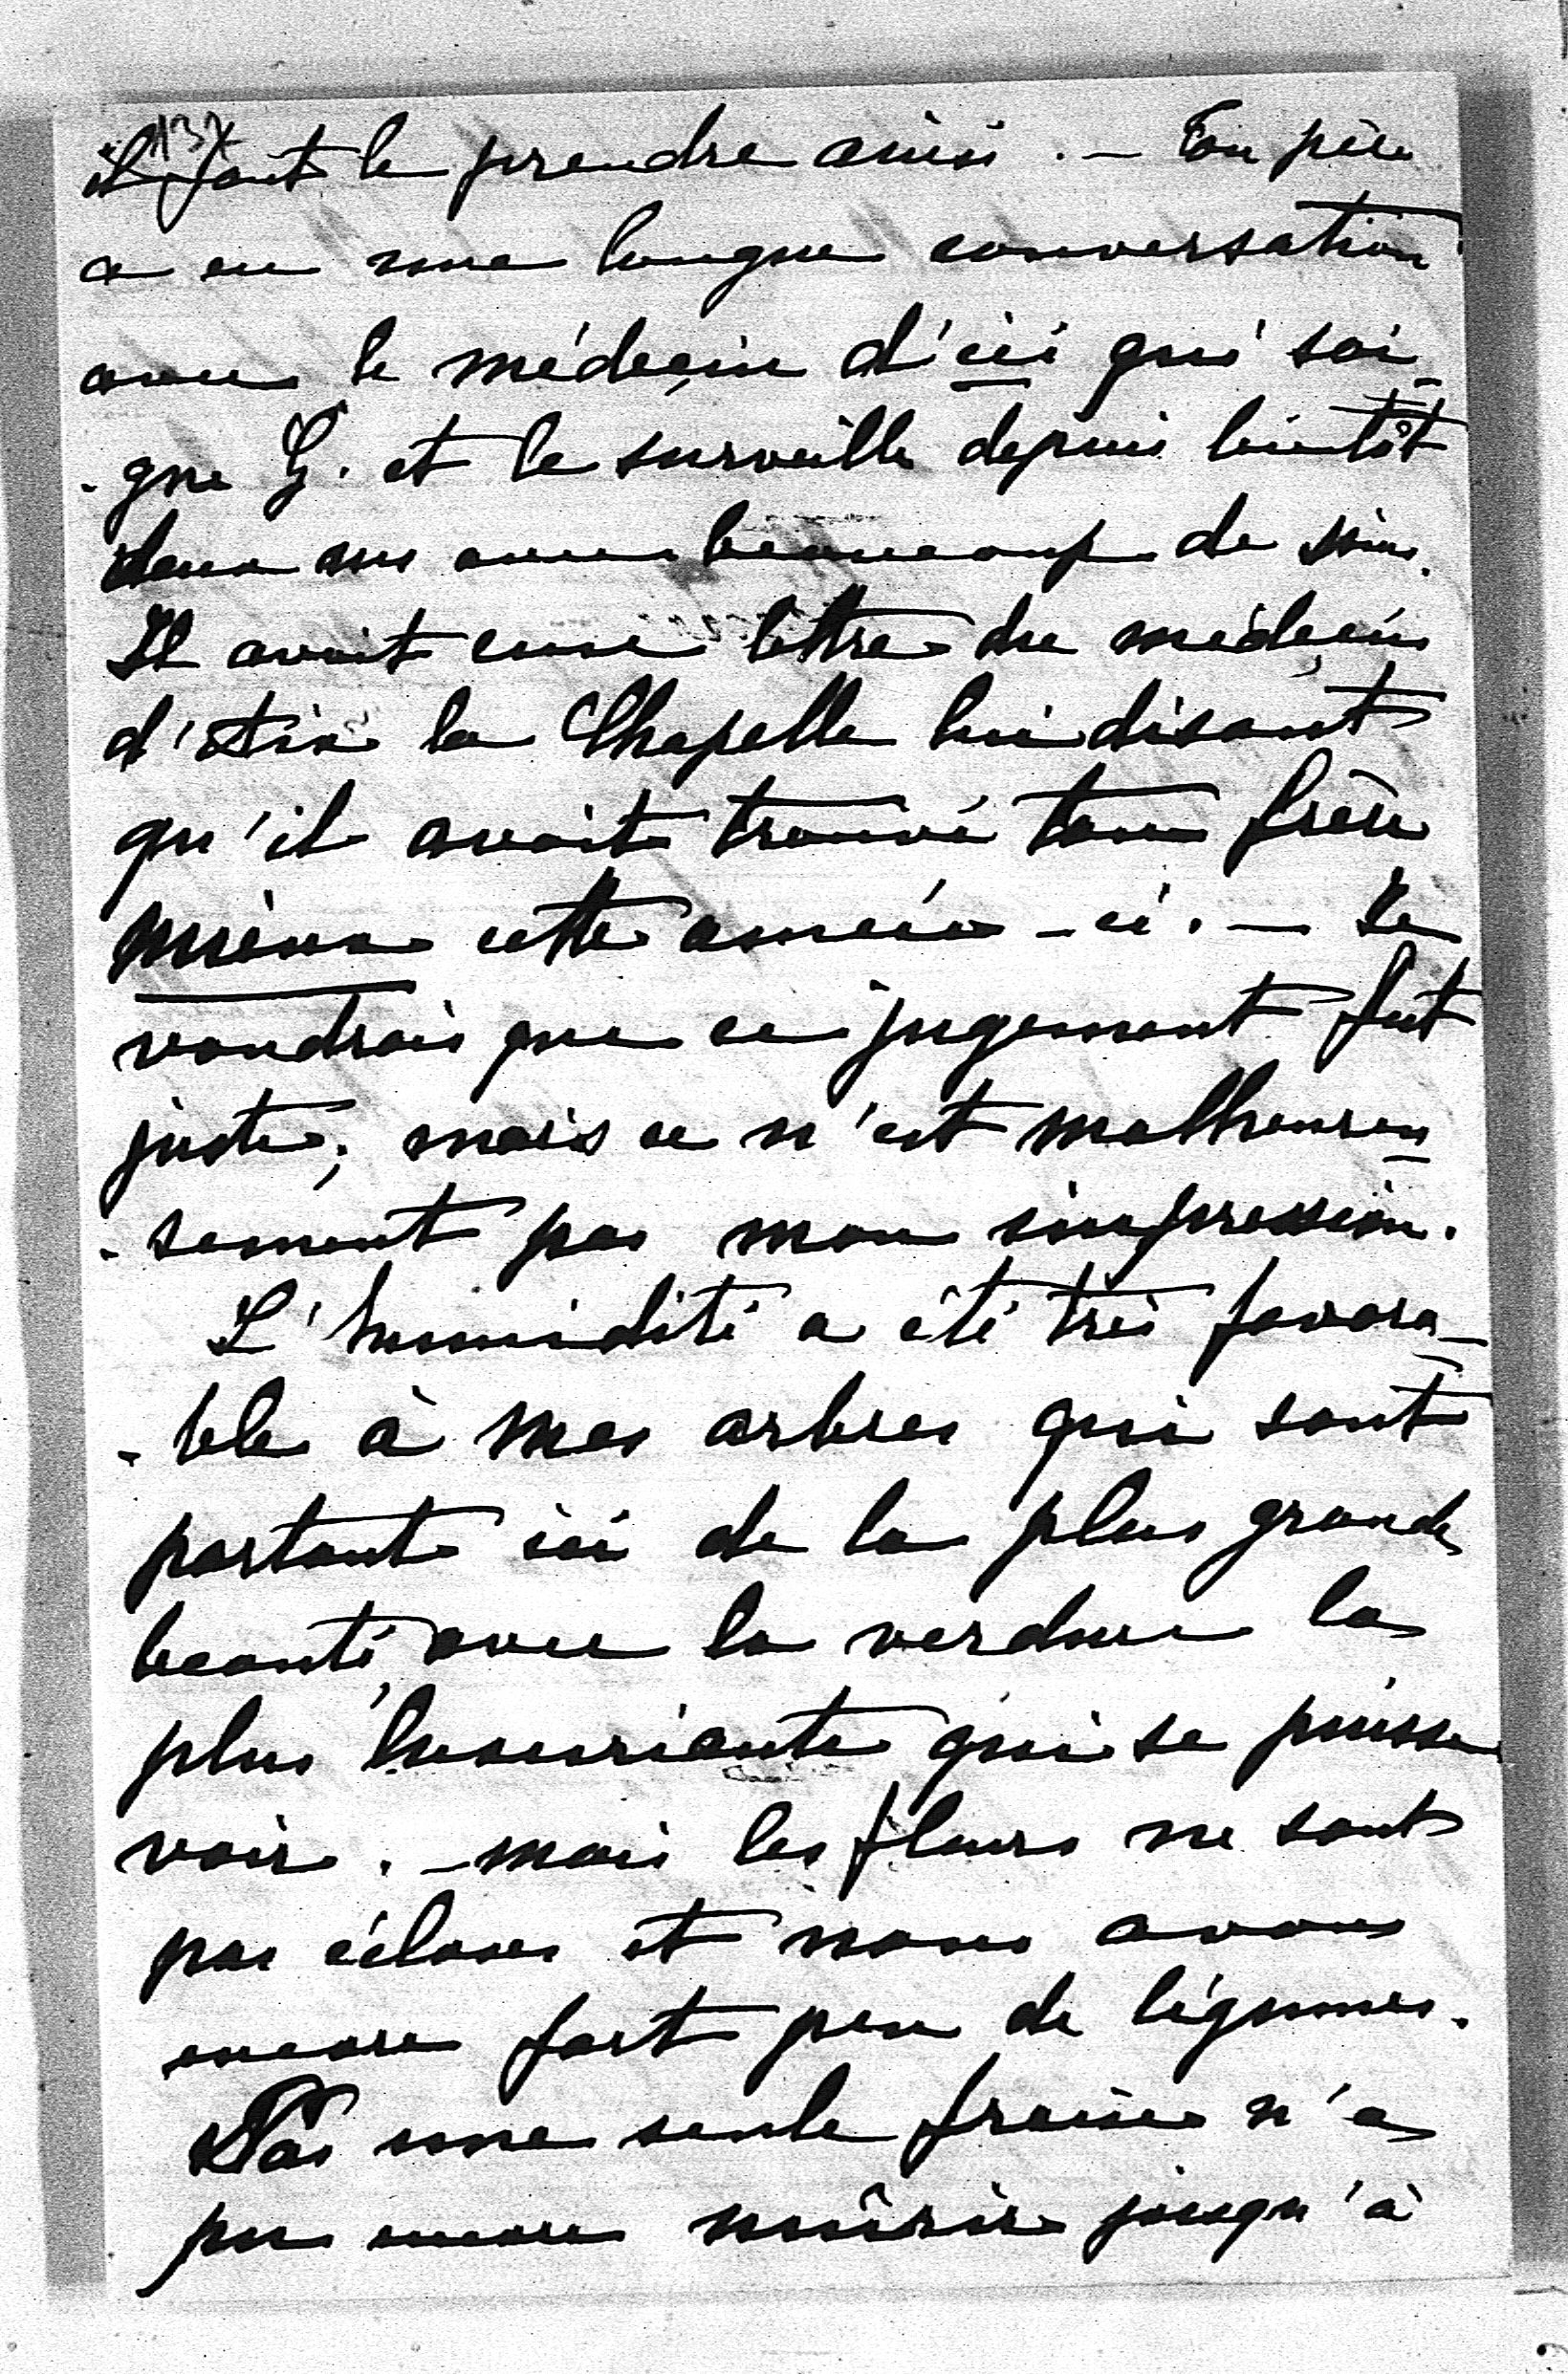 1137
il faut le prendre ainsi. — Ton père
a eu une longue conversation
avec le médecin d'ici qui soi-
-gne G. et le surveille depuis bientôt
deux ans avec beaucoup de soins.
Il avait eu une lettre du médecin
d'Aix la Chapelle lui disant
qu'il avait trouvé ton frère
mieux cette année-ci. — Je
voudrais que ce jugement fut
juste; mais ce n'est malheureu-
-sement pas mon impression.
L'humidité a été très favora-
-ble à mes arbres qui sont
partout ici de la plus grande
beauté, avec la verdure la
plus luxuriante qui se puisse
voir. — mais les fleurs ne sont
pas écloses et nous avons
encore fort peu de légumes.
Pas une seule fraise n'a
pu encore mûrir jusqu'à